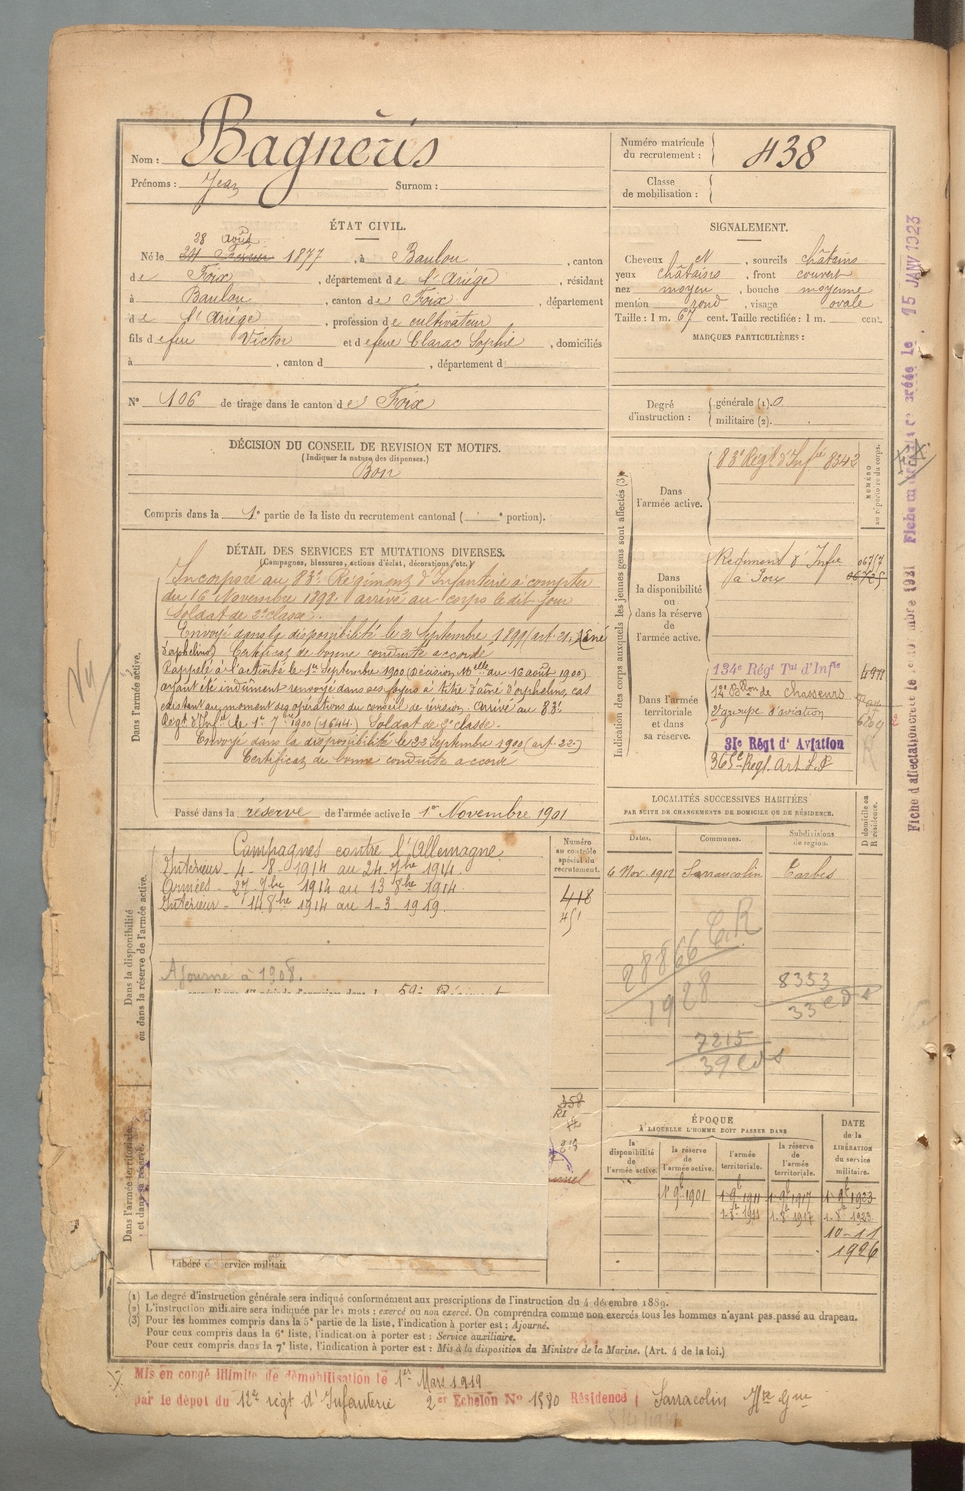 Nom : Bagnéris
Prénoms : Jean Surnom :
Numéro matricule du recrutement : 438
Classe de mobilisation :
ÉTAT CIVIL.
28 août
Né le 1877, à Baulou, canton
de Foix, département de l'Ariége, résidant
à Baulou, canton de Foix, département
de l'Ariége, profession de cultivateur
fils de feu Victor et de feue Clarac Sophie, domiciliés
à , canton d , département d
N° 106 de tirage dans le canton de Foix
SIGNALEMENT.
Cheveux N, sourcils châtains
yeux châtains, front couvert
nez moyen, bouche moyenne
menton rond, visage ovale
Taille : 1 m. 67 cent. Taille rectifiée : 1 m. cent.
MARQUES PARTICULIÈRES :
Degré d'instruction : générale (1). 0
militaire (2).
DÉCISION DU CONSEIL DE REVISION ET MOTIFS.
(Indiquer la nature des dispenses.)
Bon
Compris dans la 1e partie de la liste du recrutement cantonal ( e portion).
DÉTAIL DES SERVICES ET MUTATIONS DIVERSES.
(Campagnes, blessures, actions d'éclat, décorations, etc.)
Dans l'armée active.
Incorporé au 83e Régiment d'Infanterie à compter
du 16 Novembre 1898 arrivé au corps le dit jour
Soldat de 2e classe.
Envoyé dans la disponibilité le 20 Septembre 1899 (art. 21, Ainé
d'orphelins) Certificat de bonne conduite accordé
Rappelé à l'activité le 1er Septembre 1900 (Décision Mlle du 16 août 1900)
ayant été indûment renvoyé dans ses foyers à titre d'aîné d'orphelins, cas
existant au moment des opérations du conseil de révision. Arrivé au 83e
Régt d'Infie le 1er 7bre 1900 (1644) Soldat de 2e classe.
Envoyé dans la disponibilité le 22 Septembre 1900 (art. 22)
Certificat de bonne conduite accordé
Passé dans la réserve de l'armée active le 1er Novembre 1901
Dans la disponibilité
ou dans la réserve de l'armée active.
Campagnes contre l'Allemagne.
Intérieur 4-8-1914 au 24 7bre 1914.
Armées 27 7bre 1914 au 13 8bre 1914.
Intérieur 14 8bre 1914 au 1-3-1919.
Ajourné à 1908.
59e Régiment
Numéro au contrôle spécial du recrutement.
418
451
358
R1
213
Dans l'armée territoriale
et dans sa réserve.
Libéré du service militaire
Indication des corps auxquels les jeunes gens sont affectés (3)
NUMÉRO au répertoire du corps.
Dans l'armée active.
83e Régt d'Infie 8342
Dans la disponibilité ou dans la réserve de l'armée active.
Régiment d'Infie
à Foix
Dans l'armée territoriale et dans sa réserve.
134e Régt Tal d'Infie
12e Bllon de Chasseurs
2e groupe d'aviation
31e Régt d'Aviation
365e Regt. Art
LOCALITÉS SUCCESSIVES HABITÉES
PAR SUITE DE CHANGEMENTS DE DOMICILE OU DE RÉSIDENCE.
Dates. Communes. Subdivisions de region. D domicile ou R résidence.
6 Nov. 1912 Sarrancolin Tarbes
28866 C.R
1928
8353
33
7215
39
ÉPOQUE
À LAQUELLE L'HOMME DOIT PASSER DANS
la disponibilité de l'armée active.
la réserve de l'armée active.
l'armée territoriale.
la réserve de l'armée territoriale.
DATE de la LIBÉRATION du service militaire.
1-9b 1901 1-9b 1911 1-9b 1917 1-9b 1923
1-8t 1911 1-8t 1917 1-8t 1923
10-11
1926
(1) Le degré d'instruction générale sera indiqué conformément aux prescriptions de l'instruction du 4 décembre 1889.
(2) L'instruction militaire sera indiquée par les mots : exercé ou non exercé. On comprendra comme non exercés tous les hommes n'ayant pas passé au drapeau.
(3) Pour les hommes compris dans la 5e partie de la liste, l'indication à porter est : Ajourné.
Pour ceux compris dans la 6e liste, l'indication à porter est : Service auxiliaire.
Pour ceux compris dans la 7e liste, l'indication à porter est : Mis à la disposition du Ministre de la Marine. (Art. 4 de la loi.)
Mis en congé illimité de démobilisation le 1er Mars 1919
par le dépôt du 12e régt d'Infanterie 2er Echelon N° 1580 Résidence Sarracolin Hte Gne
Fiche d'affectation créée le 15 JANV 1923